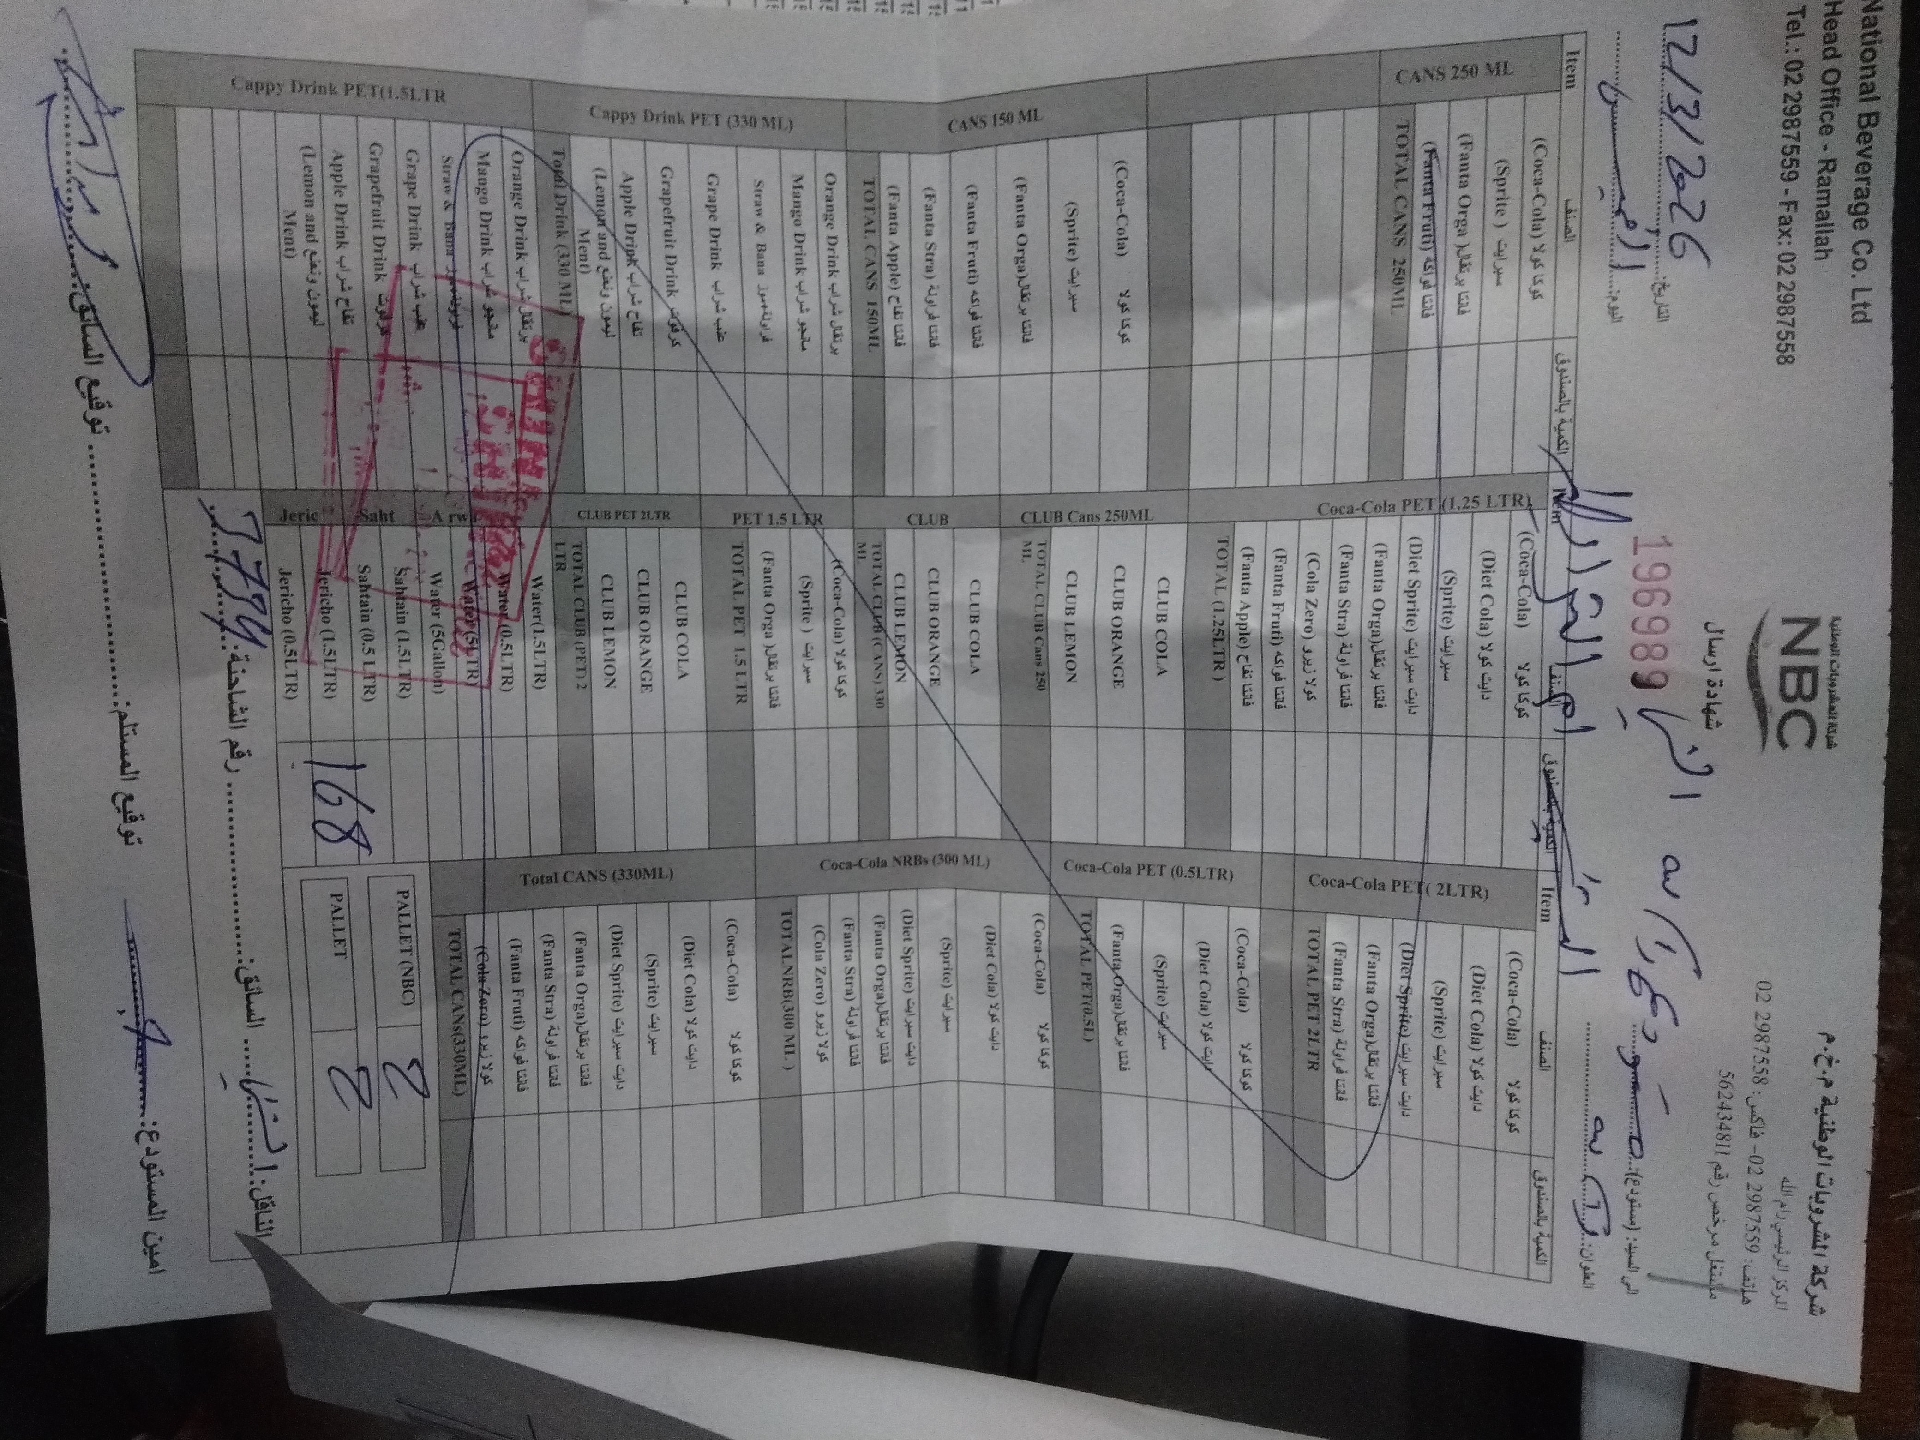 National Beverage Co. Ltd
Head Office - Ramallah
Tel.: 02 2987559 - Fax: 02 2987558
شركة المشروبات الوطنية
NBC
شركة المشروبات الوطنية م.خ.م
المركز الرئيسي رام الله
هاتف: 02 2987559 - فاكس: 02 2987558
مشتغل مرخص رقم 562434811
شهادة ارسال
196989
التاريخ: 12/3/2026
اليوم: الخميس
الى السيد: (مستودع):
العنوان:
Item الصنف الكمية بالصندوق
CANS 250 ML
(Coca-Cola) كوكا كولا
(Sprite) سبرايت
(Fanta Orga) فانتا برتقال
(Fanta Fruti) فانتا فواكه
TOTAL CANS 250ML
CANS 150 ML
(Coca-Cola) كوكا كولا
(Sprite) سبرايت
(Fanta Orga) فانتا برتقال
(Fanta Fruti) فانتا فواكه
(Fanta Stra) فانتا فراولة
(Fanta Apple) فانتا تفاح
TOTAL CANS 150ML
Cappy Drink PET (330 ML)
Orange Drink برتقال شراب
Mango Drink مانجو شراب
Straw & Bana فراولة موز
Grape Drink عنب شراب
Grapefruit Drink كرفوت
Apple Drink تفاح شراب
(Lemon and Ment) ليمون ونعنع
Total Drink (330 ML)
Cappy Drink PET(1.5LTR
Orange Drink برتقال شراب
Mango Drink مانجو شراب
Straw & Bana فراولة موز
Grape Drink عنب شراب
Grapefruit Drink كرفوت
Apple Drink تفاح شراب
(Lemon and Ment) ليمون ونعنع
Item الصنف الكمية بالصندوق
Coca-Cola PET (1.25 LTR)
(Coca-Cola) كوكا كولا
(Diet Cola) دايت كولا
(Sprite) سبرايت
(Diet Sprite) دايت سبرايت
(Fanta Orga) فانتا برتقال
(Fanta Stra) فانتا فراولة
(Cola Zero) كولا زيرو
(Fanta Fruti) فانتا فواكه
(Fanta Apple) فانتا تفاح
TOTAL (1.25LTR)
CLUB Cans 250ML
CLUB COLA
CLUB ORANGE
CLUB LEMON
TOTAL CLUB Cans 250 ML
CLUB
CLUB COLA
CLUB ORANGE
CLUB LEMON
TOTAL CLUB (CANS) 330 ML
PET 1.5 LTR
(Coca-Cola) كوكا كولا
(Sprite) سبرايت
(Fanta Orga) فانتا برتقال
TOTAL PET 1.5 LTR
CLUB PET 2LTR
CLUB COLA
CLUB ORANGE
CLUB LEMON
TOTAL CLUB (PET) 2 LTR
Water(1.5LTR)
Water(0.5LTR)
Water(5LTR)
Water (5Gallon)
Saht
Sahtain (1.5LTR)
Sahtain (0.5 LTR)
Jeric
Jericho (1.5LTR) 168
Jericho (0.5LTR)
Item الصنف الكمية بالصندوق
Coca-Cola PET( 2LTR)
(Coca-Cola) كوكا كولا
(Diet Cola) دايت كولا
(Sprite) سبرايت
(Diet Sprite) دايت سبرايت
(Fanta Orga) فانتا برتقال
(Fanta Stra) فانتا فراولة
TOTAL PET 2LTR
Coca-Cola PET (0.5LTR)
(Coca-Cola) كوكا كولا
(Diet Cola) دايت كولا
(Sprite) سبرايت
(Fanta Orga) فانتا برتقال
TOTAL PET(0.5L)
Coca-Cola NRBs (300 ML)
(Coca-Cola) كوكا كولا
(Diet Cola) دايت كولا
(Sprite) سبرايت
(Diet Sprite) دايت سبرايت
(Fanta Orga) فانتا برتقال
(Fanta Stra) فانتا فراولة
(Cola Zero) كولا زيرو
TOTALNRB(300 ML )
Total CANS (330ML)
(Coca-Cola) كوكا كولا
(Diet Cola) دايت كولا
(Sprite) سبرايت
(Diet Sprite) دايت سبرايت
(Fanta Orga) فانتا برتقال
(Fanta Stra) فانتا فراولة
(Fanta Fruti) فانتا فواكه
(Cola Zero) كولا زيرو
TOTAL CANS(330ML)
PALLET (NBC) 2
PALLET 2
الناقل: السائق: رقم الشاحنة:
امين المستودع: توقيع المستلم: توقيع السائق: